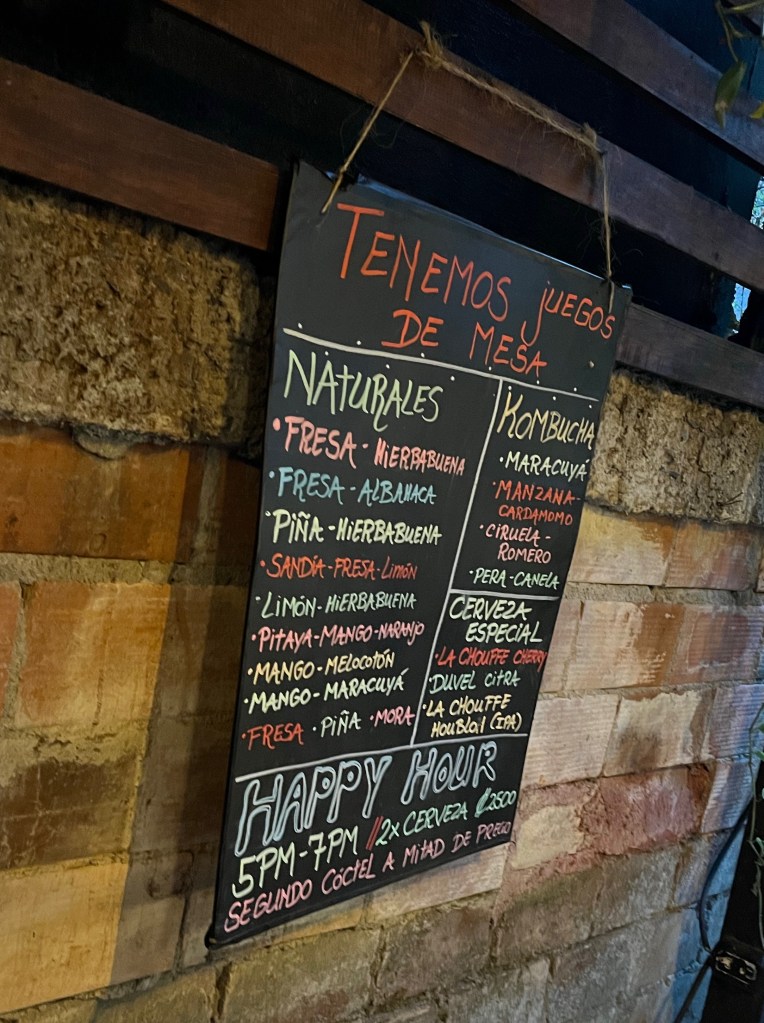 TENEMOS JUEGOS
DE MESA
NATURALES
• FRESA - HIERBABUENA
• FRESA - ALBAHACA
PIÑA - HIERBABUENA
• SANDÍA - FRESA - LIMÓN
• LIMÓN - HIERBABUENA
• PITAYA - MANGO - NARANJO
• MANGO - MELOCOTÓN
• MANGO - MARACUYÁ
• FRESA • PIÑA • MORA
KOMBUCHA
• MARACUYÁ
• MANZANA -
CARDAMOMO
• CIRUELA -
ROMERO
• PERA - CANELA
CERVEZA
ESPECIAL
• LA CHOUFFE CHERRY
• DUVEL CITRA
• LA CHOUFFE
HOUBLON (IPA)
HAPPY HOUR
5PM-7PM // 2x CERVEZA ₡2500
SEGUNDO CÓCTEL A MITAD DE PRECIO